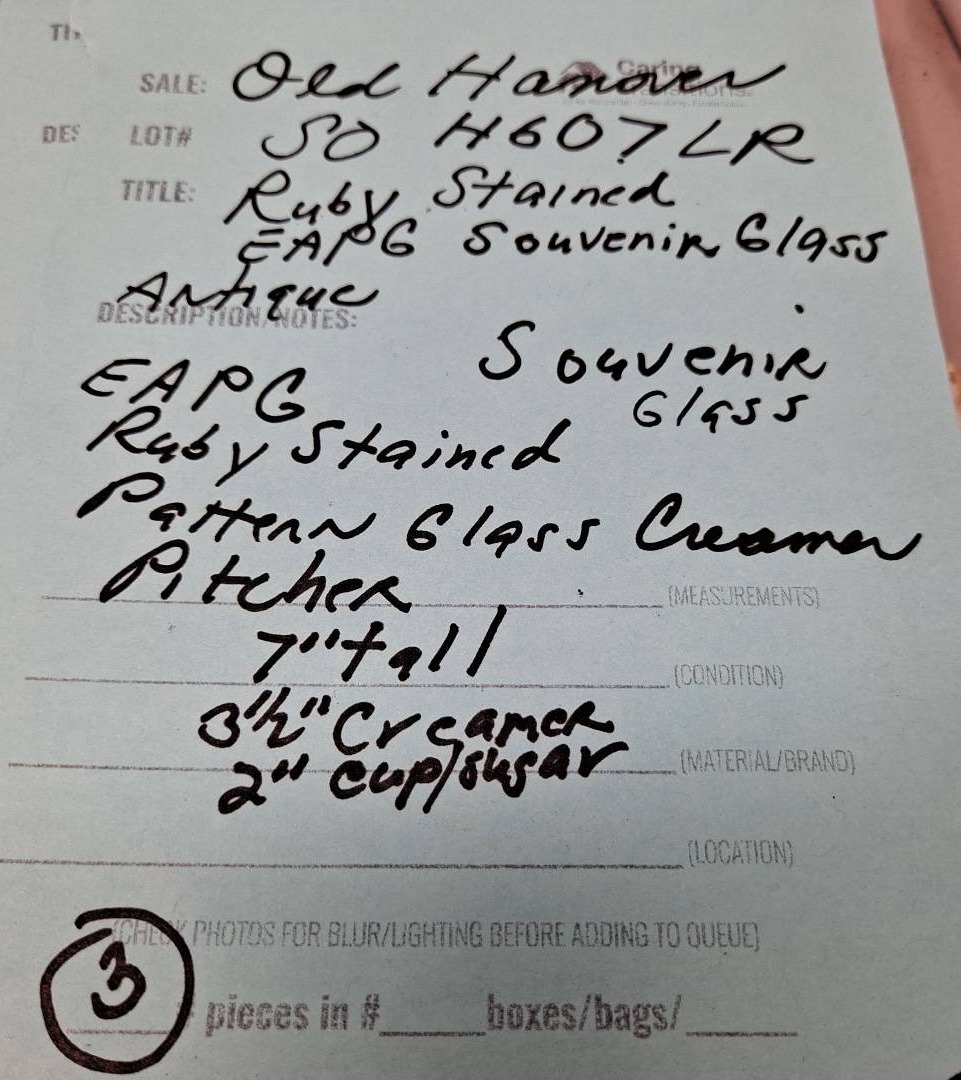 SALE: Old Hanover
LOT# SO H607LR
TITLE: Ruby Stained
EAPG Souvenir Glass
Antique
DESCRIPTION/NOTES:
Souvenir
EAPG Glass
Ruby Stained
Pattern Glass Creamer
Pitcher (MEASUREMENTS)
7" tall (CONDITION)
3½" Creamer
2" cup/sugar (MATERIAL/BRAND)
(LOCATION)
(CHECK PHOTOS FOR BLUR/LIGHTING BEFORE ADDING TO QUEUE)
3 pieces in #____ boxes/bags/____